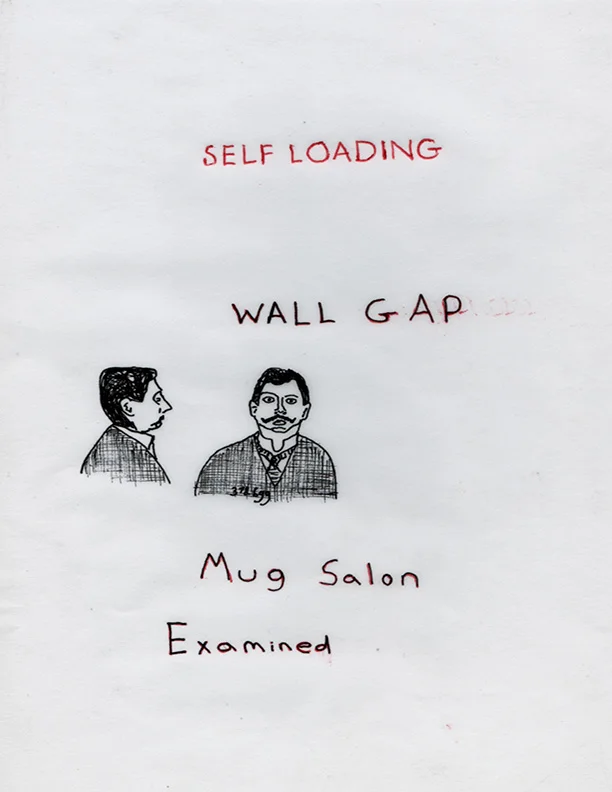 SELF LOADING
WALL GAP
Mug Salon
Examined